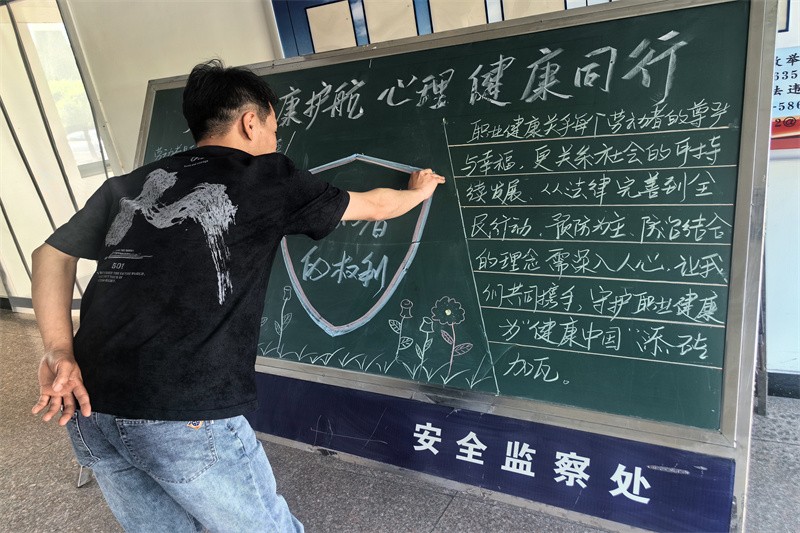 康护航 心理健康同行
职业健康关乎每个劳动者的尊严
与幸福，更关系社会的可持
续发展．从法律完善到全
民行动．预防为主．防治结合
的理念需深入人心，让我
们共同携手，守护职业健康
为“健康中国”添砖
加瓦。
者
的权利
安全监察处